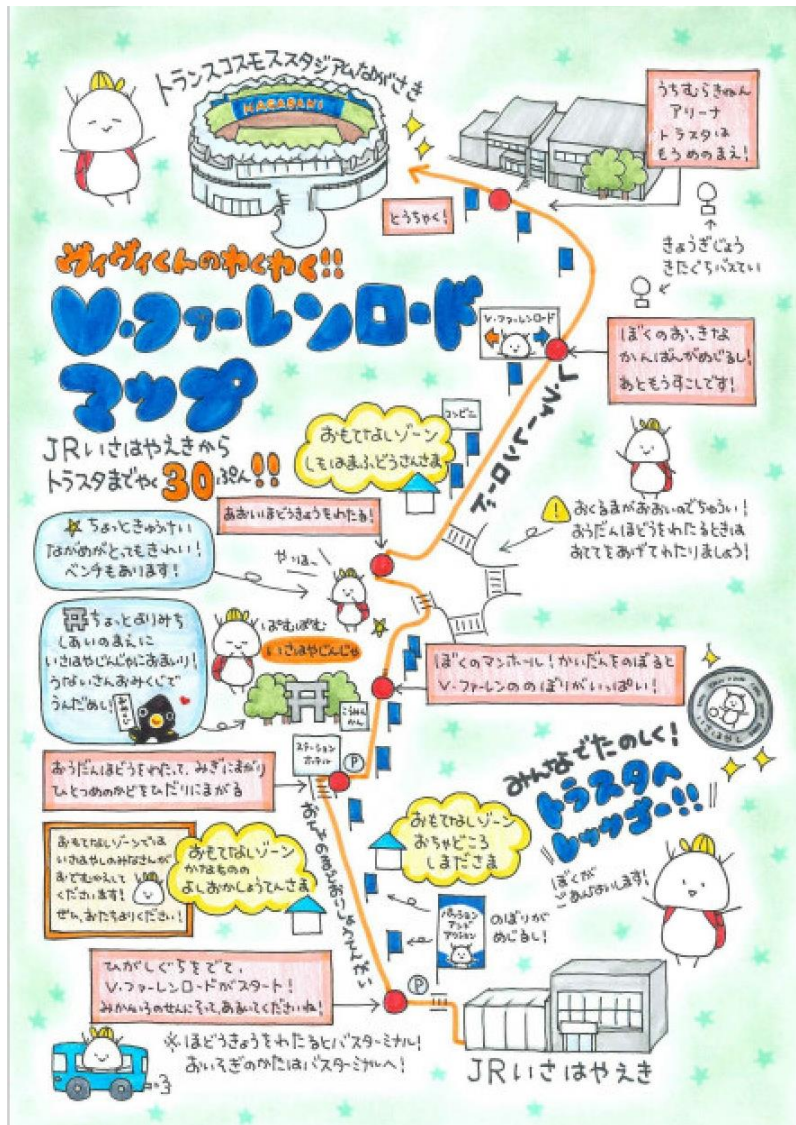 トランスコスモススタジアムながさき
NAGASAKI
うちむらきねん
アリーナ
トラスタは
もうめのまえ!
とうちゃく!
きょうぎじょう
きたぐちバスてい
ヴィヴィくんのわくわく!!
V・ファーレンロード
マップ
JRいさはやえきから
トラスタまでやく30ぷん!!
V・ファーレンロード
ぼくのおっきな
かんばんがめじるし!
あともうすこしです!
V・ファーレンロード
コンビニ
おもてなしゾーン
しもはまふどうさんさま
あおいほどうきょうをわたる!
おくるまがおおいのでちゅうい!
おうだんほどうをわたるときは
おててをあげてわたりましょう!
ちょっときゅうけい
ながめがとってもきれい!
ベンチもあります!
やっほ〜
ちょっとよりみち
しあいのまえに
いさはやじんじゃにおまいり!
うないさんおみくじで
うんだめし!
ぱむぱむ
いさはやじんじゃ
こうみんかん
ぼくのマンホール!かいだんをのぼると
V・ファーレンののぼりがいっぱい!
ステーション
ホテル
P
おうだんほどうをわたって、みぎにまがり
ひとつめのかどをひだりにまがる
みんなでたのしく!
トラスタへ
レッツゴー!!
ぼくが
ごあんないします!
おもてなしゾーンでは
いさはやしのみなさんが
おでむかえして
くださいます!
ぜひ、おたちよりください!
おもてなしゾーン
かなものの
よしおかしょうてんさま
おもてなしゾーン
おちゃどころ
しまださま
パッション
アンド
アクション
のぼりが
めじるし!
ひがしぐちをでて、
V・ファーレンロードがスタート!
みかんいろのせんにそって、あるいてくださいね!
P
※ほどうきょうをわたるとバスターミナル!
おいそぎのかたはバスターミナルへ!
JRいさはやえき